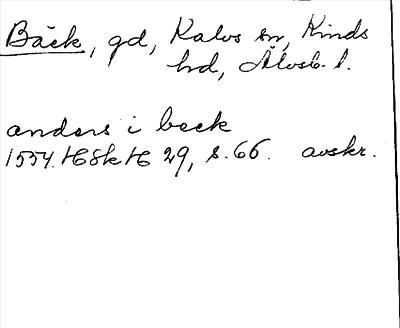 Bäck, gd, Kalvs sn, Kinds
hd, Älvsb. l.
anders i beck
1554. HSkH 29, s. 66. avskr.